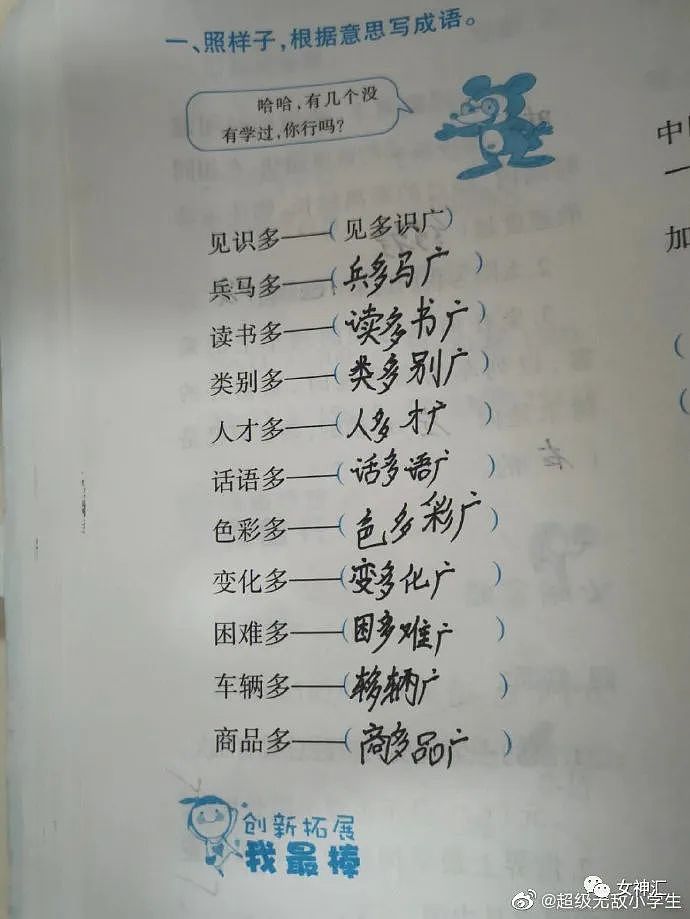 一、照样子,根据意思写成语。
哈哈,有几个没
有学过,你行吗?
见识多——(见多识广)
兵马多——(兵多马广)
读书多——(读多书广)
类别多——(类多别广)
人才多——(人多才广)
话语多——(话多语广)
色彩多——(色多彩广)
变化多——(变多化广)
困难多——(困多难广)
车辆多——(车多辆广)
商品多——(商多品广)
创新拓展
我最棒
中
一
加
(
(
女神汇
@超级无敌小学生